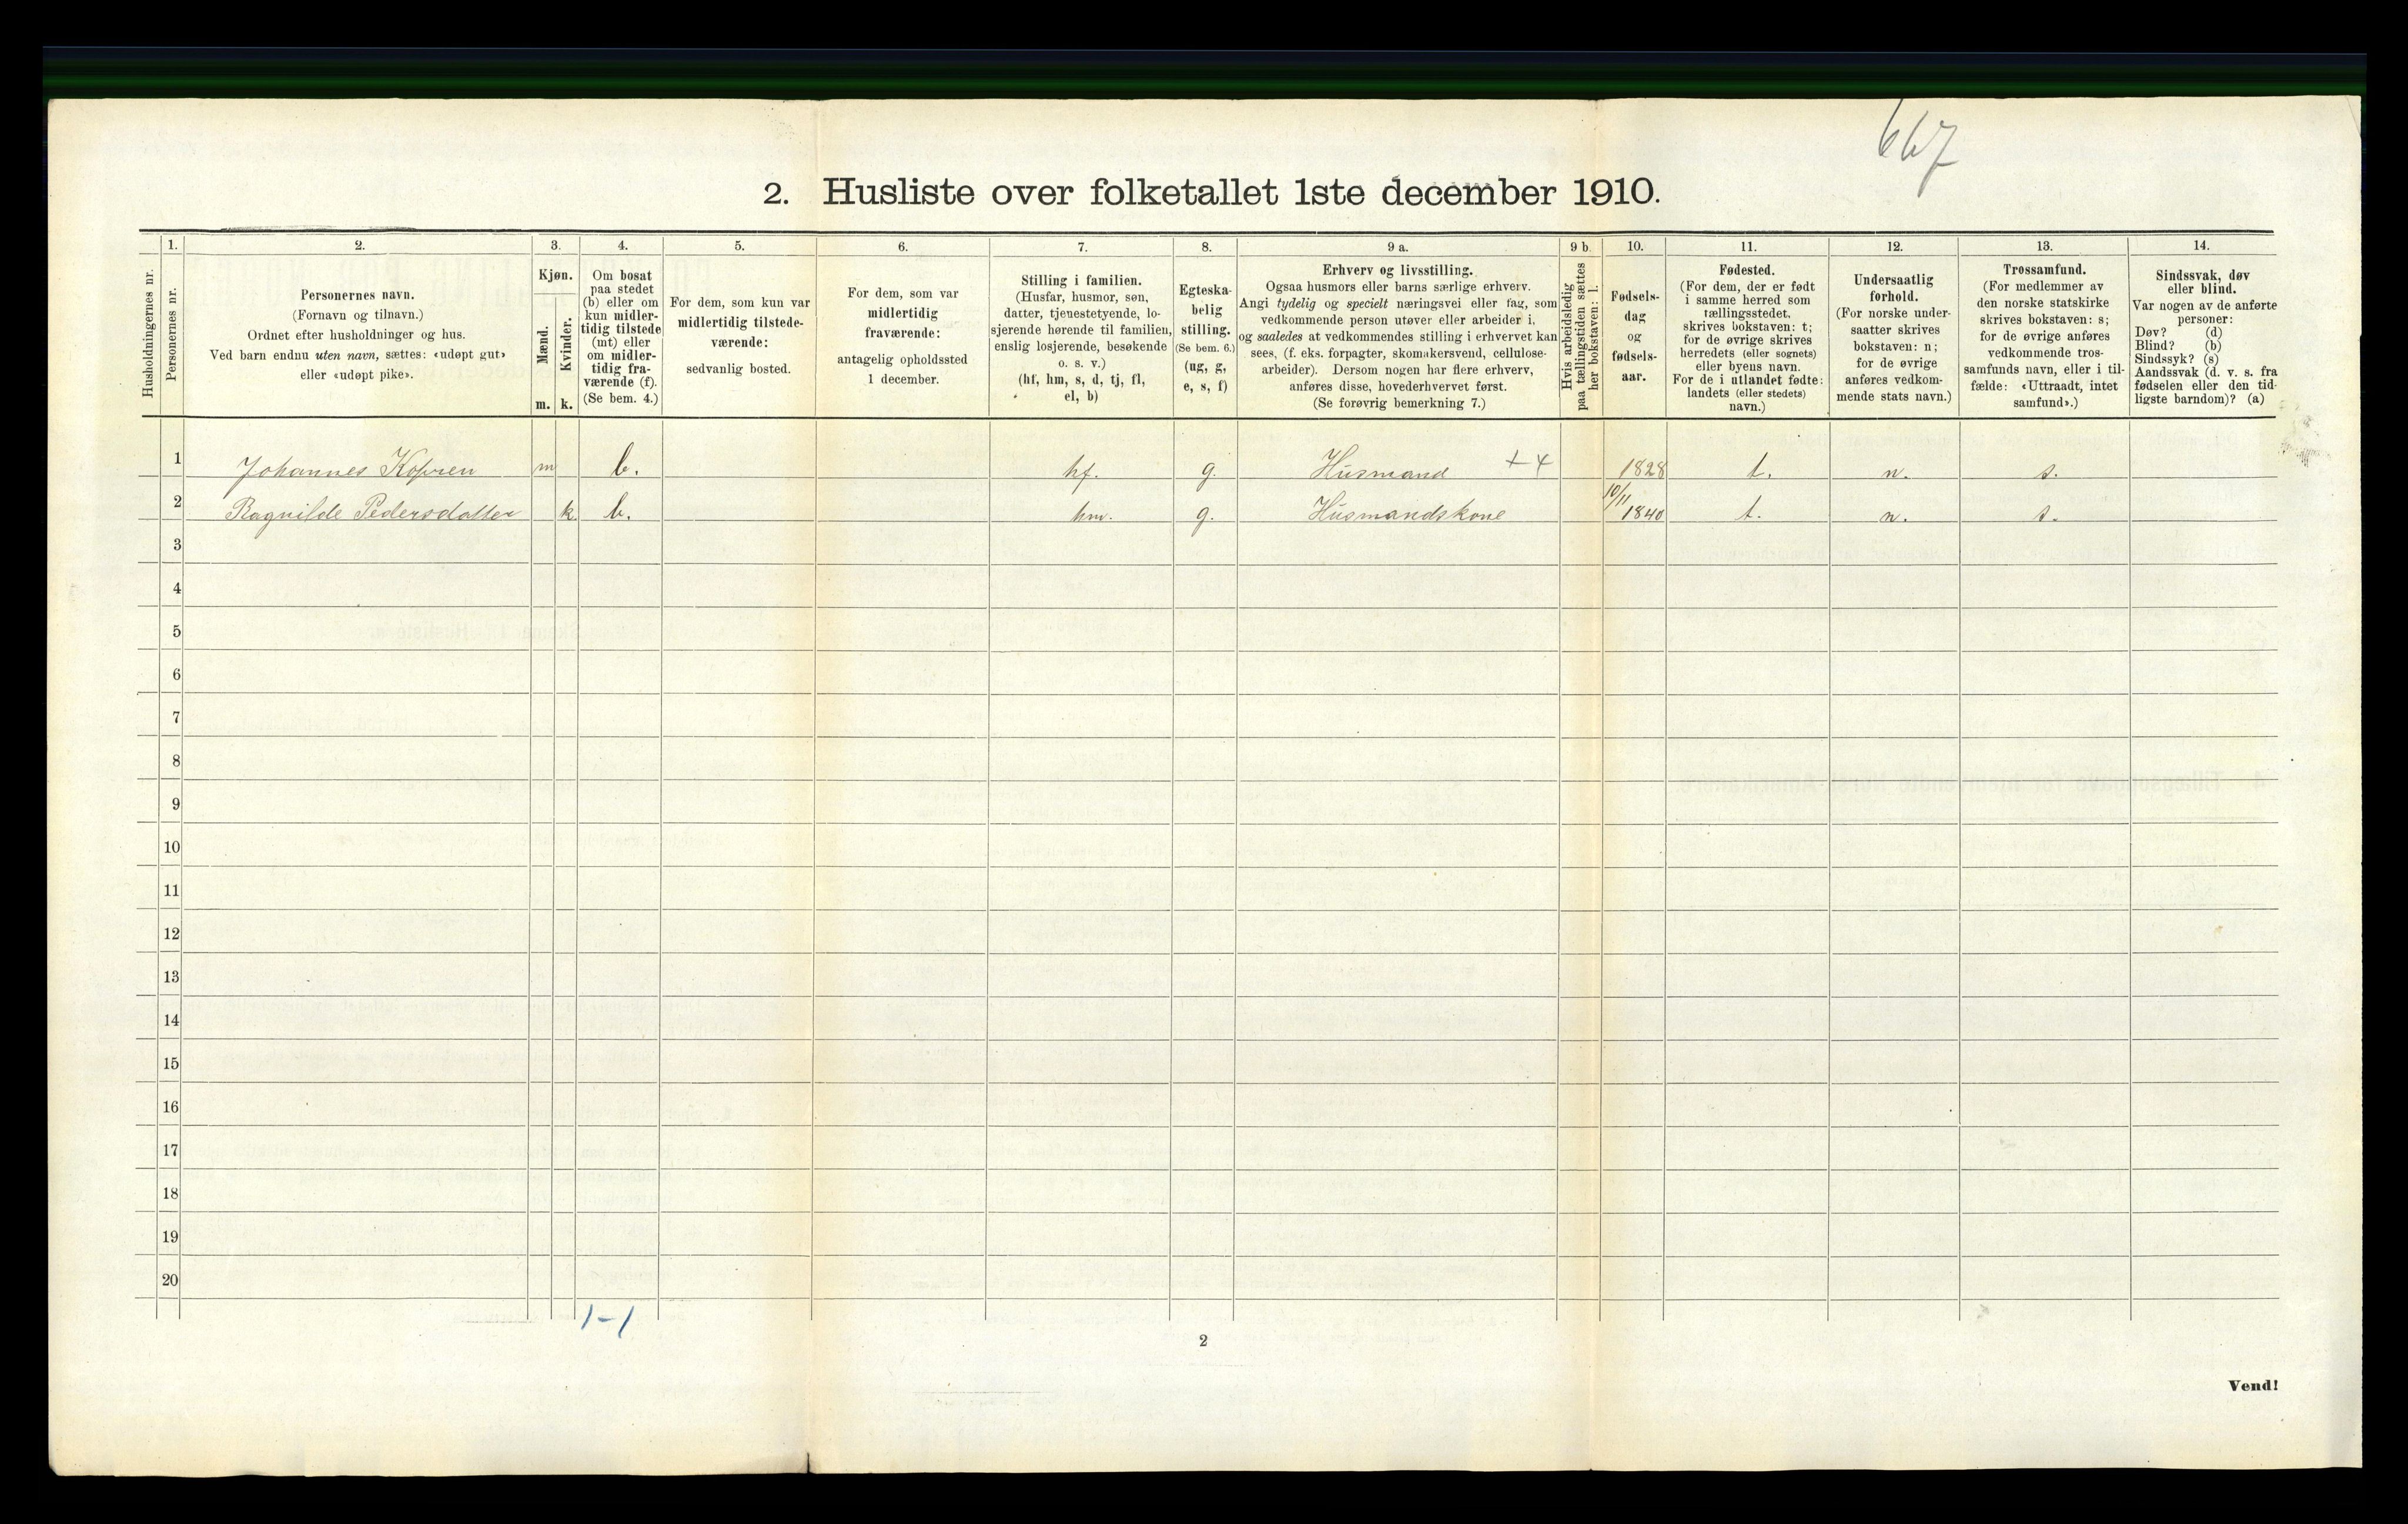 667
2. Husliste over folketallet 1ste december 1910.
Husholdningernes nr.
1.
Personernes nr.
2.
Personernes navn.
(Fornavn og tilnavn.)
Ordnet efter husholdninger og hus.
Ved barn endnu uten navn, sættes: «udøpt gut»
eller «udøpt pike».
3.
Kjøn.
Mænd.
Kvinder.
m. k.
4.
Om bosat
paa stedet
(b) eller om
kun midler-
tidig tilstede
(mt) eller
om midler-
tidig fra-
værende (f).
(Se bem. 4.)
5.
For dem, som kun var
midlertidig tilstede-
værende:
sedvanlig bosted.
6.
For dem, som var
midlertidig
fraværende:
antagelig opholdssted
1 december.
7.
Stilling i familien.
(Husfar, husmor, søn,
datter, tjenestetyende, lo-
sjerende hørende til familien,
enslig losjerende, besøkende
o. s. v.)
(hf, hm, s, d, tj, fl,
el, b)
8.
Egteska-
belig
stilling.
(Se bem. 6.)
(ug, g,
e, s, f)
9 a.
Erhverv og livsstilling.
Ogsaa husmors eller barns særlige erhverv.
Angi tydelig og specielt næringsvei eller fag, som
vedkommende person utøver eller arbeider i,
og saaledes at vedkommendes stilling i erhvervet kan
sees, (f. eks. forpagter, skomakersvend, cellulose-
arbeider). Dersom nogen har flere erhverv,
anføres disse, hovederhvervet først.
(Se forøvrig bemerkning 7.)
9 b.
Hvis arbeidsledig
paa tællingstiden sættes
her bokstaven: l.
10.
Fødsels-
dag
og
fødsels-
aar.
11.
Fødested.
(For dem, der er født
i samme herred som
tællingsstedet,
skrives bokstaven: t;
for de øvrige skrives
herredets (eller sognets)
eller byens navn.
For de i utlandet fødte:
landets (eller stedets)
navn.)
12.
Undersaatlig
forhold.
(For norske under-
saatter skrives
bokstaven: n;
for de øvrige
anføres vedkom-
mende stats navn.)
13.
Trossamfund.
(For medlemmer av
den norske statskirke
skrives bokstaven: s;
for de øvrige anføres
vedkommende tros-
samfunds navn, eller i til-
fælde: «Uttraadt, intet
samfund».)
14.
Sindssvak, døv
eller blind.
Var nogen av de anførte
personer:
Døv? (d)
Blind? (b)
Sindssyk? (s)
Aandssvak (d. v. s. fra
fødselen eller den tid-
ligste barndom)? (a)
1 Johannes Kopren m b. hf. g. Husmand + 4 1828 t. n. s.
2 Ragnilde Pedersdatter k b. hm. g. Husmandskone 10/11 1840 t. n. s.
3
4
5
6
7
8
9
10
11
12
13
14
15
16
17
18
19
20
1-1
2
Vend!